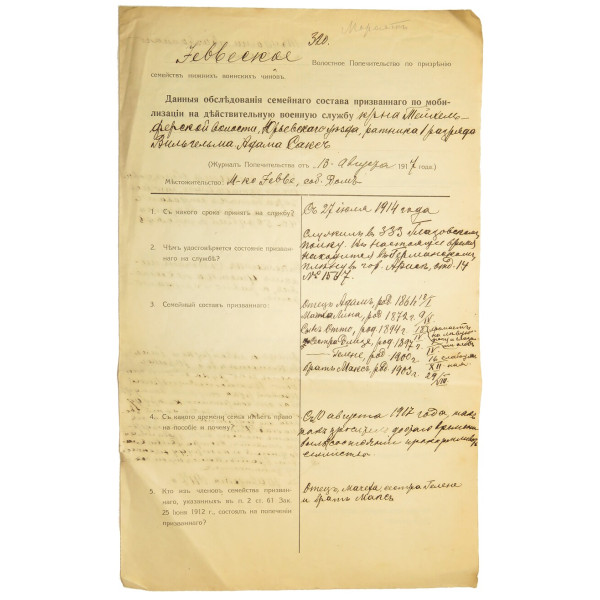 320.
Іеввеское Волостное Попечительство по призрѣнію
семействъ нижнихъ воинскихъ чиновъ.
Данныя обслѣдованія семейнаго состава призваннаго по моби-
лизаціи на дѣйствительную военную службу кр-на
волости, Юрьевскаго уѣзда, ратника I разряда
Вильгельма Адама Саксъ
(Журналъ Попечительства отъ 18 августа 1917 года.)
Мѣстожительство: М-ко Іевве, соб. домъ
1. Съ какого срока принятъ на службу?
Съ 27 іюля 1914 года
2. Чѣмъ удостовѣряется состояніе призван-
наго на службѣ?
Служилъ въ 333 Глазовскомъ
полку. Въ настоящее время
находится въ Германскомъ
плѣну въ гор.
№ 1557.
3. Семейный составъ призваннаго:
Отецъ Адамъ, род. 1864
Лина, род. 1872 г.
Отто, род. 1894 г.
сестра род. 1897 г.
Гелене, род. 1900 г.
братъ Максъ род. 1903 г.
4. Съ какого времени семья имѣетъ право
на пособіе и почему?
Съ августа 1917 года, такъ
какъ до того времени
былъ въ состояніи
семейство
5. Кто изъ членовъ семейства призван-
наго, указанныхъ въ п. 2 ст. 61 Зак.
25 Іюня 1912 г., состоялъ на попеченіи
призваннаго?
Отецъ, мачеха, сестра Гелене
и братъ Максъ